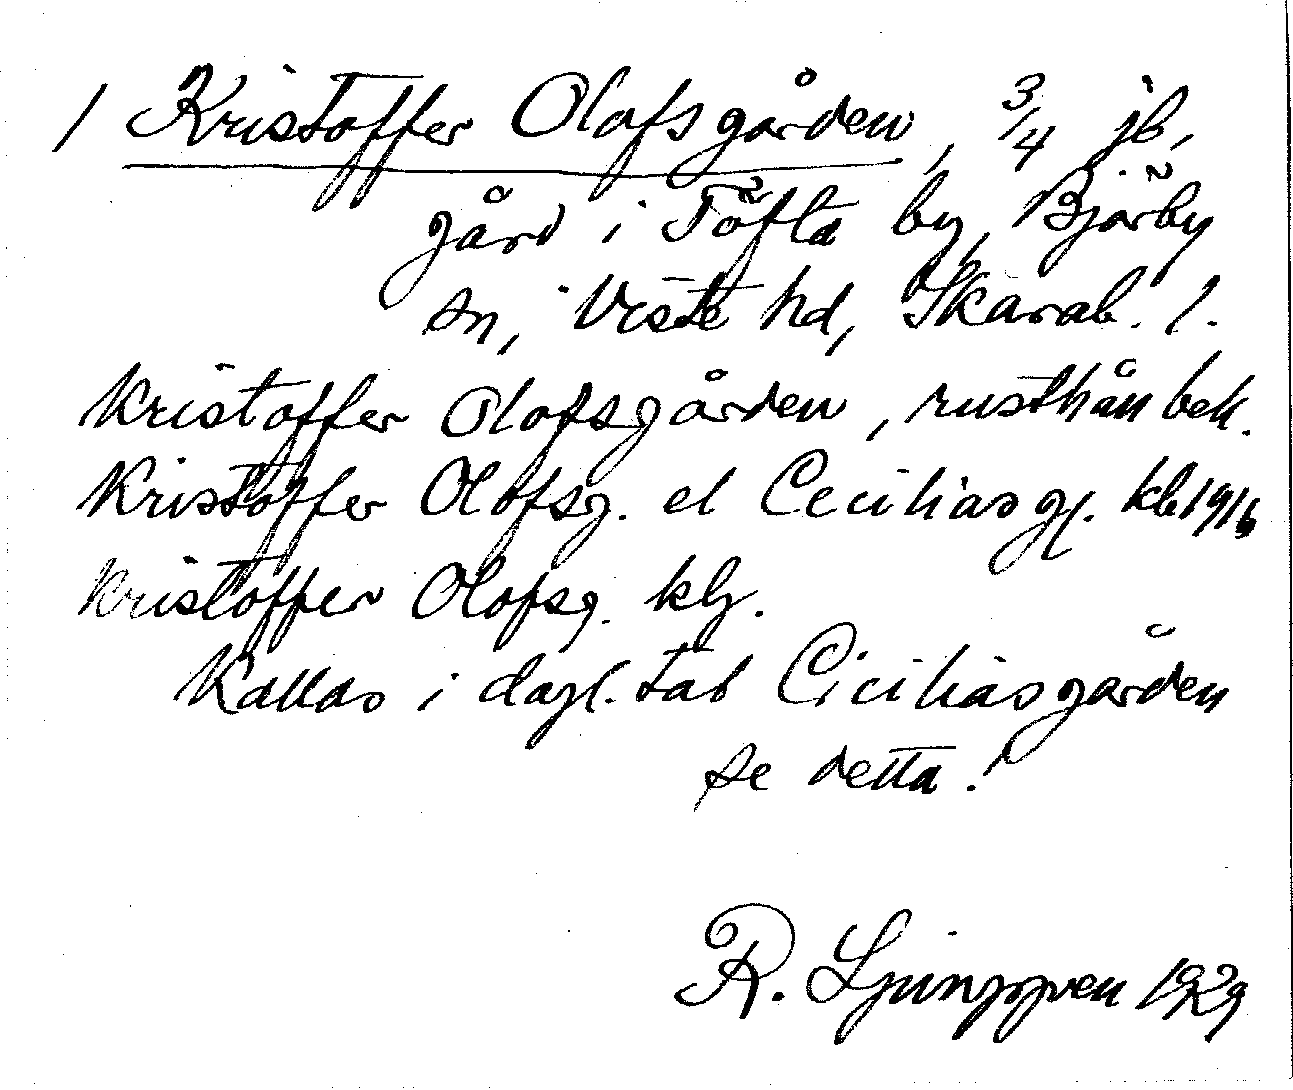 1 Kristoffer Olofsgården, 3/4 jb,
gård i Töfta by, Björby
sn, Viste hd, Skarab. l.
Kristoffer Olofsgården, rusthåll bek.
Kristoffer Olofsg. el Ceciliasg. kb 1916
Kristoffer Olofsg. klg.
Kallas i dagl. tal Ciciliasgården
se detta!
R. Ljunggren 1929